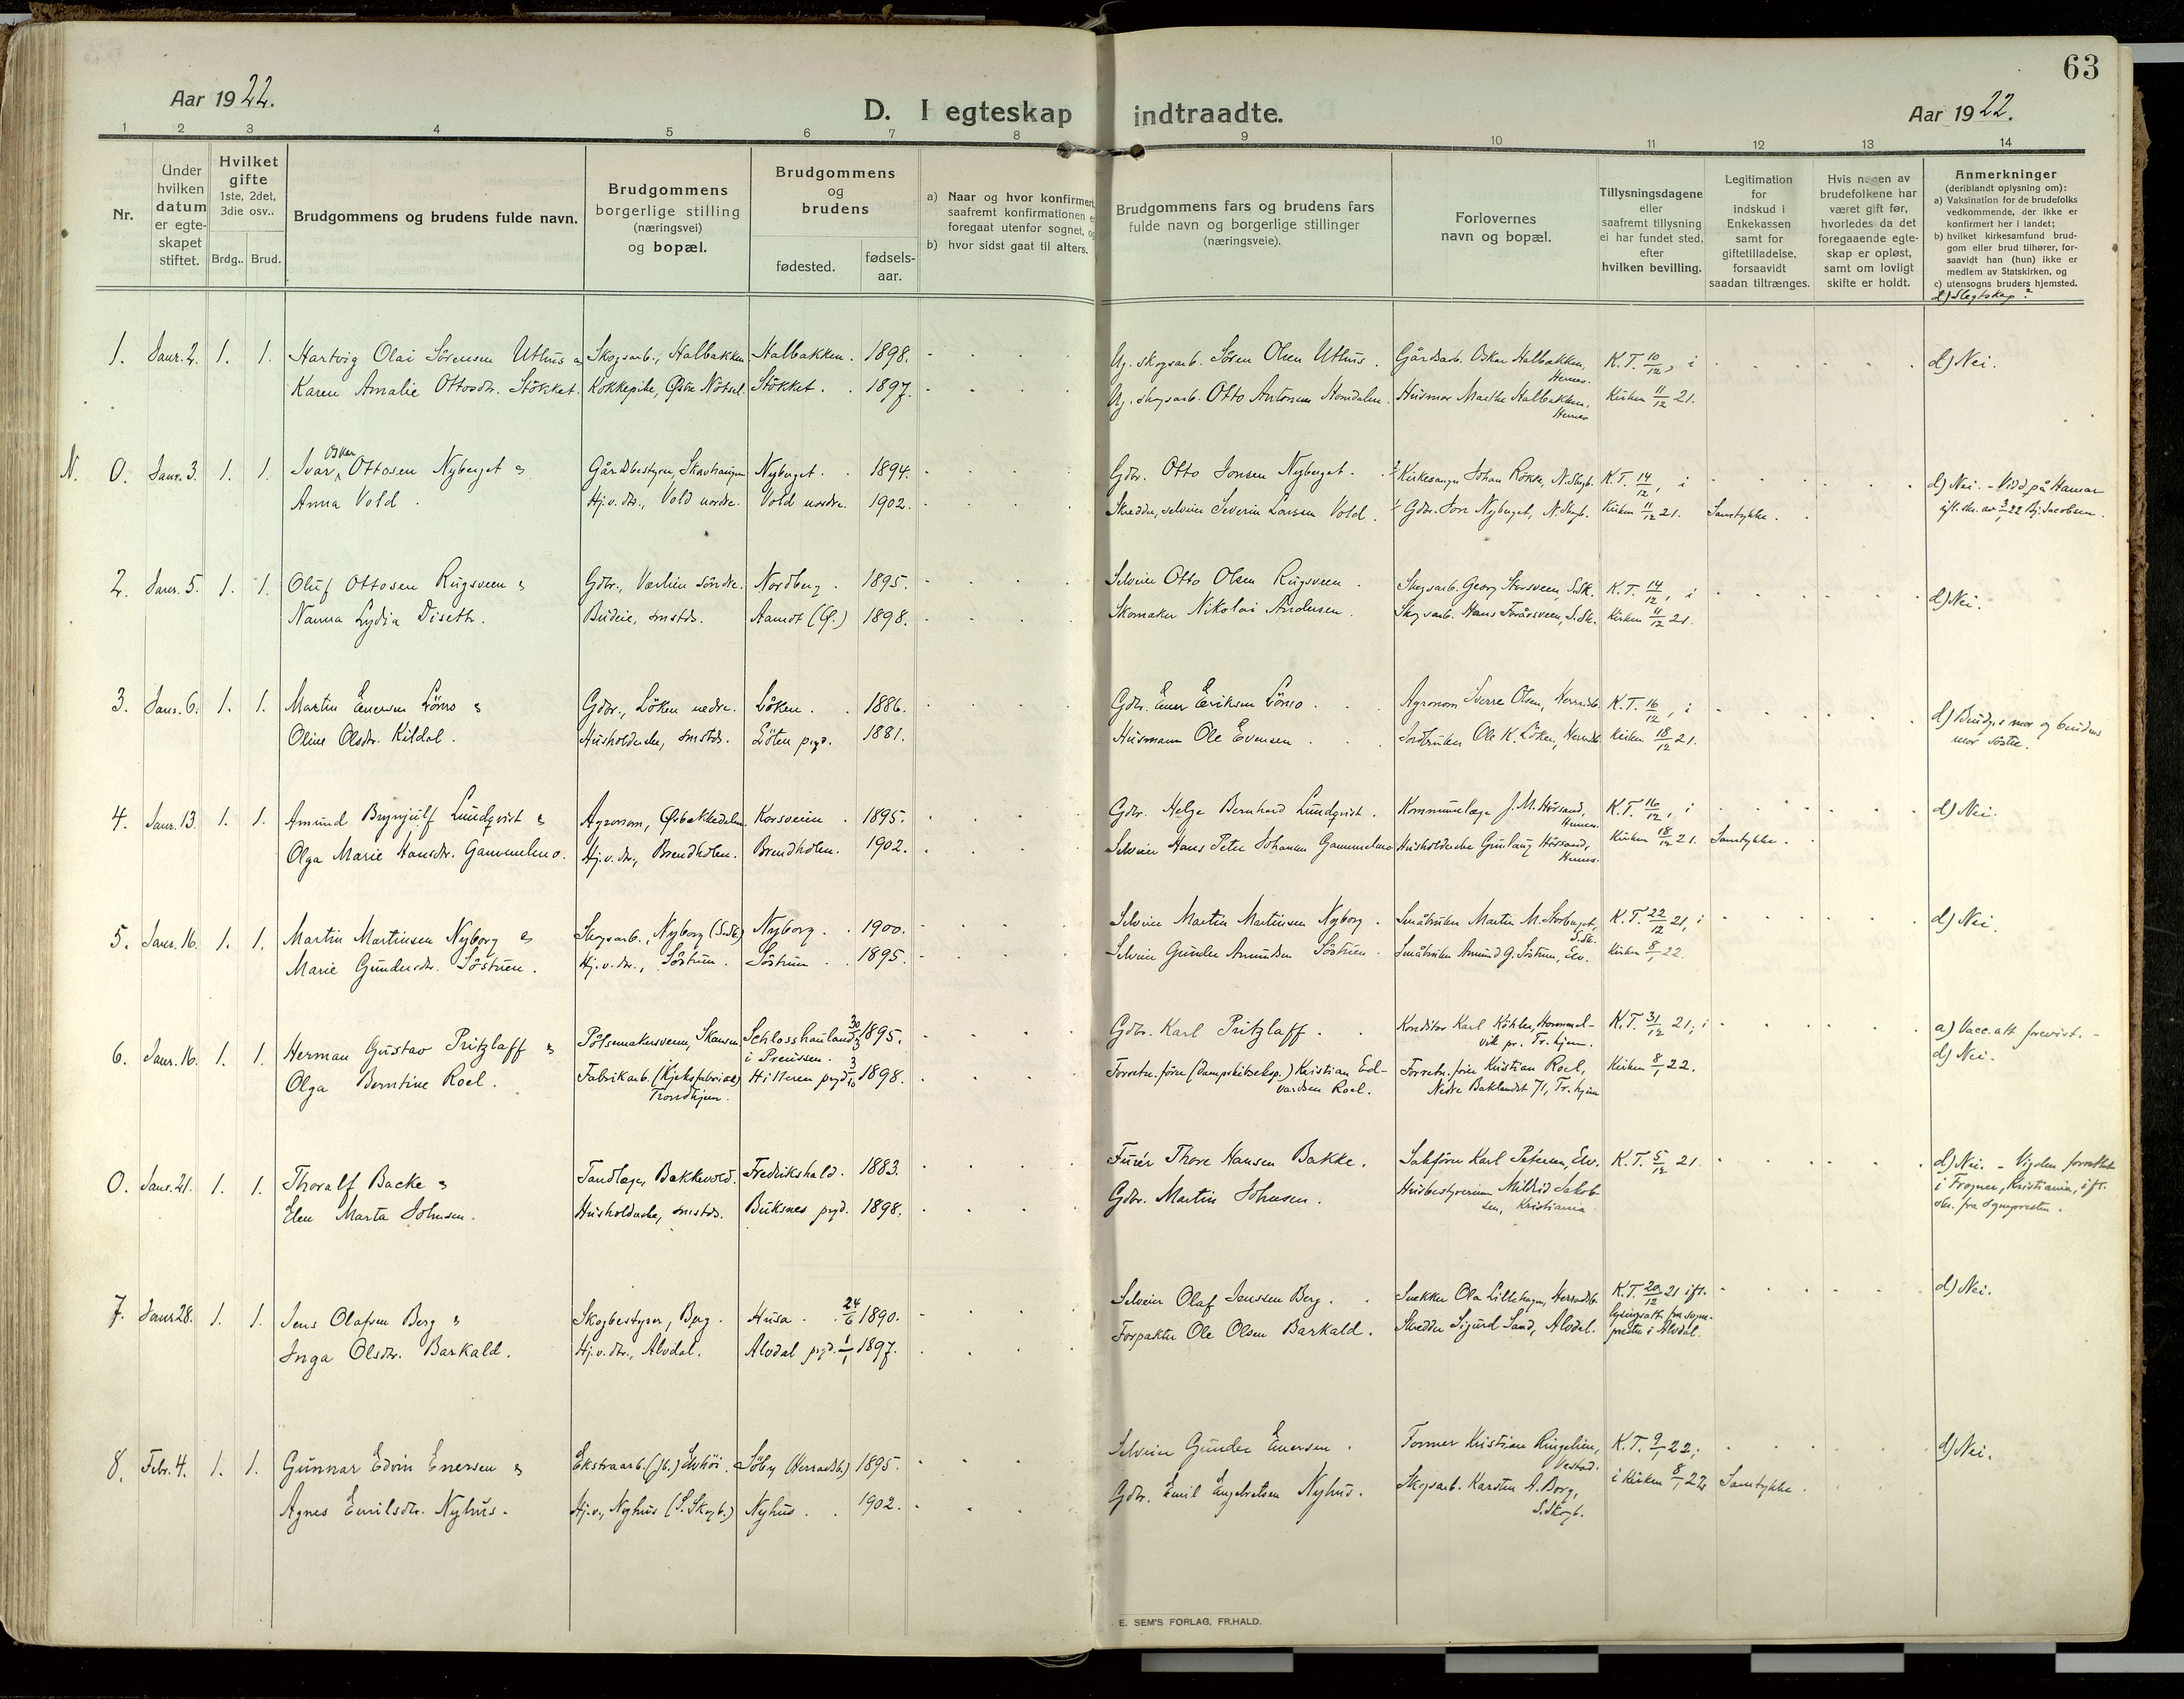 63
Aar 1922.
D. I egteskap indtraadte.
Aar 1922.
1 2 3 4 5 6 7 8 9 10 11 12 13 14
Nr.
Under hvilken datum er egteskapet stiftet.
Hvilket gifte
1ste, 2det, 3die osv..
Brdg.. Brud.
Brudgommens og brudens fulde navn.
Brudgommens borgerlige stilling (næringsvei) og bopæl.
Brudgommens og brudens
fødested.
fødselsaar.
a) Naar og hvor konfirmert,
saafremt konfirmationen
foregaat utenfor sognet,
b) hvor sidst gaat til alters.
Brudgommens fars og brudens fars
fulde navn og borgerlige stillinger
(næringsveie).
Forlovernes
navn og bopæl.
Tillysningsdagene
eller
saafremt tillysning
ei har fundet sted,
efter
hvilken bevilling.
Legitimation
for
indskud i
Enkekassen
samt for
giftetilladelse,
forsaavidt
saadan tiltrænges.
Hvis nogen av
brudefolkene har
været gift før,
hvorledes da det
foregaaende egte-
skap er opløst,
samt om lovligt
skifte er holdt.
Anmerkninger
(deriblandt oplysning om):
a) Vaksination for de brudefolks
vedkommende, der ikke er
konfirmert her i landet;
b) hvilket kirkesamfund brud-
gom eller brud tilhører, for-
saavidt han (hun) ikke er
medlem av Statskirken, og
c) utensogns bruders hjemsted.
d) Slegtskap?
1. Janr. 2. 1. 1. Hartvig Olai Sörensen Uthus & Skogsarb., Halbakken Halbakken. 1898. Ug. skogsarb. Sören Olsen Uthus. Gårdsarb. Oskar Halbakken, Hernes. K.T. 10/12, i d) Nei.
Karen Amalie Ottosdr. Stökket. Kokkepike, Østre Nötsel. Stökket. 1897. Ug. skogsarb. Otto Antonsen Husmor Marthe Halbakken, Hernes Kirken 11/12 21.
N. 0. Janr. 3. 1. 1. Ivar Oskar Ottosen Nyberget & Gårdbestyrer, Nyberget. 1894. Gdbr. Otto Jonsen Nyberget. Kirkesanger Johan Rökke, N. Skgb. K.T. 14/12, i d) Nei. - Vidd på Hamar
Anna Vold. Hj.v. dtr., Vold nordre. Vold nordre. 1902. Skredder, selveier Severin Larsen Vold. Gdbr. Jon Nyberget, N. Skgb. Kirken 11/12 21. Samtykke. ifl. skr. av 3/1 22 Jacobsen.
2. Janr. 5. 1. 1. Oluf Ottosen Rugsveen & Gdbr., söndre. Nordberg. 1895. Selveier Otto Olsen Rugsveen. Skogsarb. Georg Storsveen, S.Sk. K.T. 14/12, i d) Nei.
Nanna Lydia Diseth. Budeie, smstds. Aamot (Ø.) 1898. Skomaker Nikolai Andersen. Skogsarb. Hans S.Sk. Kirken 11/12 21.
3. Janr. 6. 1. 1. Martin Enersen Lömo & Gdbr., Löken nedre. Löken. 1886. Gdbr. Ener Eriksen Lömo. Agronom Sverre Olsen, K.T. 16/12, i d) Brudg.s mor og brudens
Oline Olsdtr. Kildal. Husholderske, smstds. Löten prgd. 1881. Husmann Ole Evensen. Jordbruker Ole K. Löken, Kirken 18/12 21. mor söstre.
4. Janr. 13. 1. 1. Amund Brynjulf Lundqvist & Agronom, Korsveien 1895. Gdbr. Helge Bernhard Lundqvist. Kommunelæge J. M. Hörsand, Hernes. K.T. 16/12, i d) Nei.
Olga Marie Hansdtr. Gammelmo. Hj.v. dtr., Brendholen. Brendholen. 1902. Selveier Hans Peter Johansen Gammelmo Husholderske Gunlaug Hörsand, Hernes. Kirken 18/12 21. Samtykke.
5. Janr. 16. 1. 1. Martin Martinsen Nyborg & Skogsarb., Nyborg (S.Sk.) Nyborg. 1900. Selveier Martin Martinsen Nyborg. Småbruker Martin M. Storberget, S.Sk. K.T. 22/12 21, i d) Nei.
Marie Gundersdtr. Söstuen. Hj.v. dtr., Söstuen. Söstuen 1895. Selveier Gunder Amundsen Söstuen. Småbruker Amund G. Söstuen, Elv. Kirken 8/1 22.
6. Janr. 16. 1. 1. Herman Gustav Pritzlaff & Pölsemakersvenn, Skansen Schlosshauland i Preussen. 30/3 1895. Gdbr. Karl Pritzlaff. Konditor Karl Köhler, Hommelvik pr. Tr.hjem. K.T. 31/12 21, i a) Vacc.att. forevist. -
Olga Berntine Roel. Fabrikarb. (Kjeksfabrikk) Trondhjem. Hitteren prgd. 3/10 1898. Forretn.förer (dampskibseksp.) Kristian Edvardsen Roel. Forretn.förer Kristian Roel, Nedre Baklandet 71, Tr.hjem Kirken 8/1 22. d) Nei.
0. Janr. 21. 1. 1. Thoralf Backe & Tandlæge, Bakkevold. Fredrikshald. 1883. Furér Thore Hansen Bakke. Sakförer Karl Petersen, Elv. K.T. 5/12 21. d) Nei. - Vigslen forrettet
Elen Marta Johnsen. Husholderske, smstds. Buksnes prgd. 1898. Gdbr. Martin Johnsen. Husbestyrerinne Mildrid Jakobsen, Kristiania i Frogner, Kristiania, ifl. skr. fra sognepresten.
7. Janr. 28. 1. 1. Jens Olafsen Berg & Skogbestyrer, Berg. Husa. 24/6 1890. Selveier Olaf Jenssen Berg. Snekker Ola Lillehagen, K.T. 20/12 21 ifl. d) Nei.
Inga Olsdtr. Barkald. Hj.v. dtr., Alvdal. Alvdal prgd. 1/1 1897. Forpakter Ole Olsen Barkald. Skredder Sigurd Sand, Alvdal. lysingsatt. fra sogneprestn i Alvdal.
8. Febr. 4. 1. 1. Gunnar Edvin Enersen & Ekstraarb. (Jb.) Söby 1895. Selveier Gunder Enersen. Former Kristian Ringelien, Vestad. K.T. 9/1 22; d) Nei.
Agnes Emilsdtr. Nyhus. Hj.v., Nyhus (S. Skogb.) Nyhus. 1902. Gdbr. Emil Engebretsen Nyhus. Skogsarb. Karsten A. Borg, S.Skogb. i Kirken 8/1 22 Samtykke.
E. SEM'S FORLAG, FR.HALD.